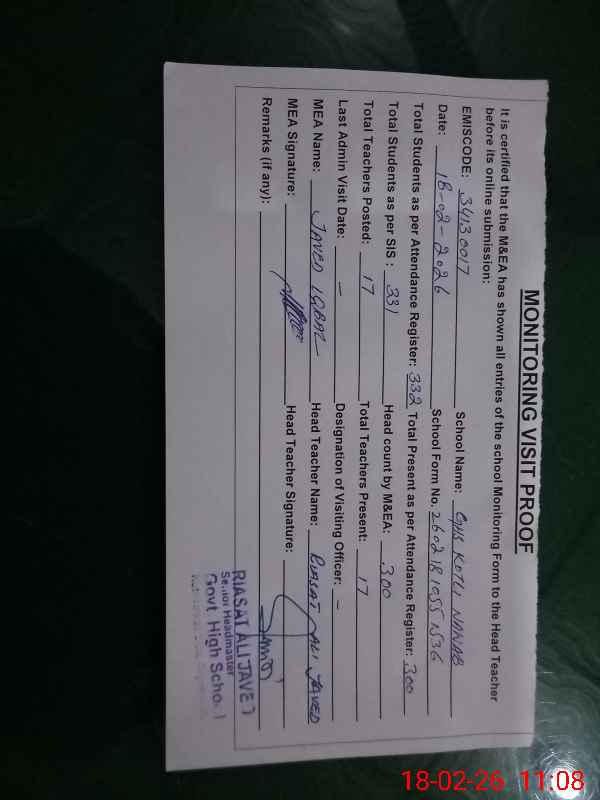 MONITORING VISIT PROOF
It is certified that the M&EA has shown all entries of the school Monitoring Form to the Head Teacher
before its online submission:
EMISCODE: 34130017 School Name: GHS KOTLI NAWAB
Date: 18-02-2026 School Form No. 26021810551536
Total Students as per Attendance Register: 332 Total Present as per Attendance Register: 300
Total Students as per SIS : 331 Head count by M&EA: 300
Total Teachers Posted: 17 Total Teachers Present: 17
Last Admin Visit Date: – Designation of Visiting Officer: –
MEA Name: JAVED IQBAL Head Teacher Name: RIASAT ALI JAVED
MEA Signature: Head Teacher Signature:
Remarks (if any):
RIASAT ALI JAVED
Senior Headmaster
Govt High School
18-02-26 11:08